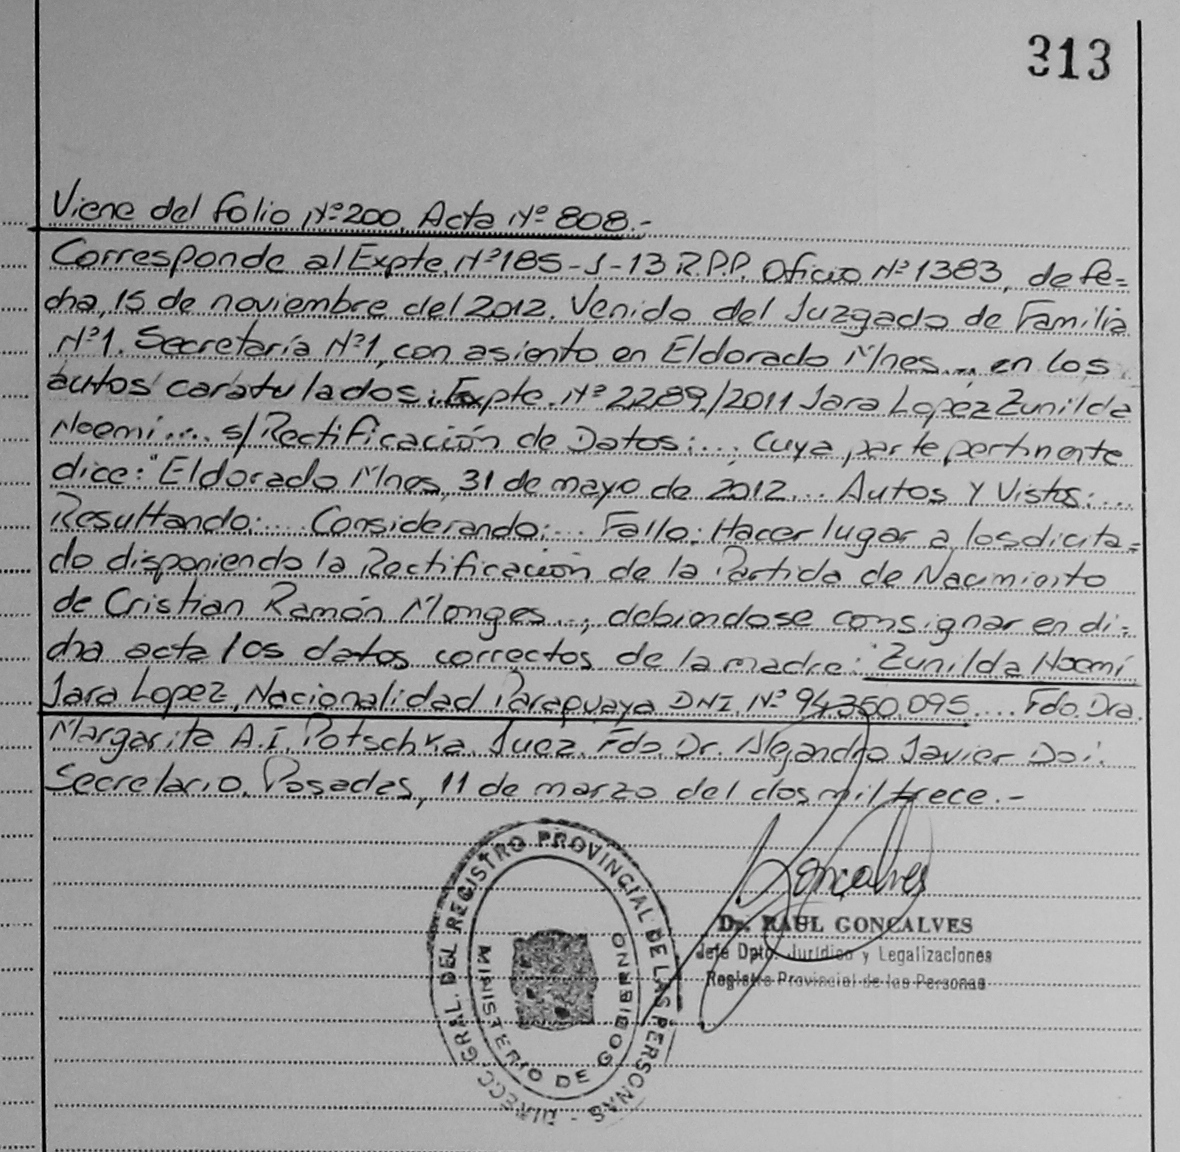 313
Viene del folio Nº 200, Acta Nº 808.-
Corresponde al Expte. Nº 185-J-13 R.P.P. Oficio Nº 1383, de fe=
cha, 15 de noviembre del 2012. Venido del Juzgado de Familia
Nº1. Secretaría Nº1, con asiento en Eldorado Mnes... en los
autos caratulados: Expte. Nº 2289/2011 Jara Lopez Zunilda
Noemi.... s/Rectificación de Datos:..., cuya parte pertinente
dice: "Eldorado Mnes, 31 de mayo de 2012... Autos Y Vistos:....
Resultando:.... Considerando:.... Fallo: Hacer lugar a lo
do disponiendo la Rectificación de la Partida de Nacimiento
de Cristian Ramón Monges..., debiendose consignar en di=
cha acta los datos correctos de la madre: "Zunilda Noemí
Jara Lopez, Nacionalidad Paraguaya DNI. Nº 94.350.095.... Fdo. Dra.
Margarita A.I. Potschka. Juez. Fdo. Dr. Alejandro Javier
Secretario. Posadas, 11 de marzo del dos mil trece.-
Goncalves
Dr. RAUL GONCALVES
Jefe Dpto. Jurídico y Legalizaciones
Registro Provincial de las Personas
DIRECC. GRAL. DEL REGISTRO PROVINCIAL DE LAS PERSONAS -
MINISTERIO DE GOBIERNO